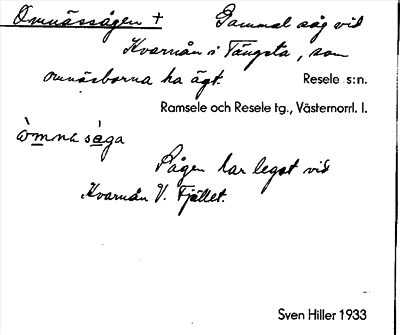 Omnässågen + Gammal såg vid
Kvarnån i Tängsta, som
omnäsborna ha ägt. Resele s:n.
Ramsele och Resele tg., Västernorrl. l.
òmnesága
Sågen har legat vid
Kvarnån V. Fjället.
Sven Hiller 1933